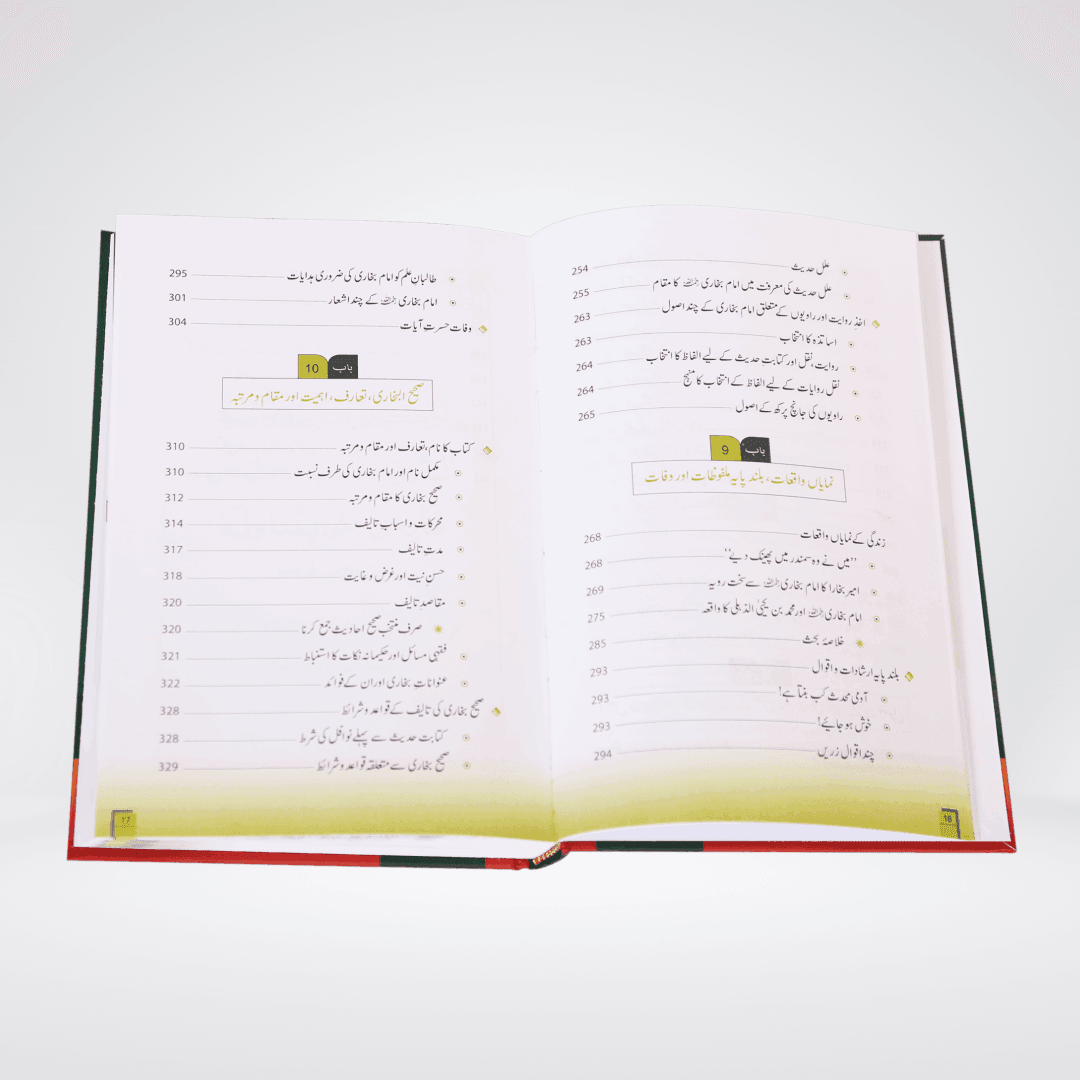 علل حدیث 254
علل حدیث کی معرفت میں امام بخاری رحمہ اللہ کا مقام 255
اخذِ روایت اور راویوں کے متعلق امام بخاری کے چند اصول 263
اساتذہ کا انتخاب 263
روایت، نقل اور کتابتِ حدیث کے لیے الفاظ کا انتخاب 264
نقل روایات کے لیے الفاظ کے انتخاب کا منہج 264
راویوں کی جانچ پرکھ کے اصول 265
باب 9
نمایاں واقعات، بلند پایہ ملفوظات اور وفات
زندگی کے نمایاں واقعات 268
’’میں نے وہ سمندر میں پھینک دیے‘‘ 268
امیر بخارا کا امام بخاری رحمہ اللہ سے سخت رویہ 269
امام بخاری رحمہ اللہ اور محمد بن یحییٰ الذہلی کا واقعہ 275
خلاصۂ بحث 285
بلند پایہ ارشادات و اقوال 293
آدمی محدث کب بنتا ہے! 293
خوش ہو جائیے! 293
چند اقوال زریں 294
16
طالبانِ علم کو امام بخاری کی ضروری ہدایات 295
امام بخاری رحمہ اللہ کے چند اشعار 301
وفات حسرت آیات 304
باب 10
صحیح البخاری، تعارف، اہمیت اور مقام و مرتبہ
کتاب کا نام، تعارف اور مقام و مرتبہ 310
مکمل نام اور امام بخاری کی طرف نسبت 310
صحیح بخاری کا مقام و مرتبہ 312
محرکات و اسباب تالیف 314
مدتِ تالیف 317
حسن نیت اور غرض و غایت 318
مقاصد تالیف 320
صرف منتخب صحیح احادیث جمع کرنا 320
فقہی مسائل اور حکیمانہ نکات کا استنباط 321
عنوانات بخاری اور ان کے فوائد 322
صحیح بخاری کی تالیف کے قواعد و شرائط 328
کتابت حدیث سے پہلے نوافل کی شرط 328
صحیح بخاری سے متعلقہ قواعد و شرائط 329
17